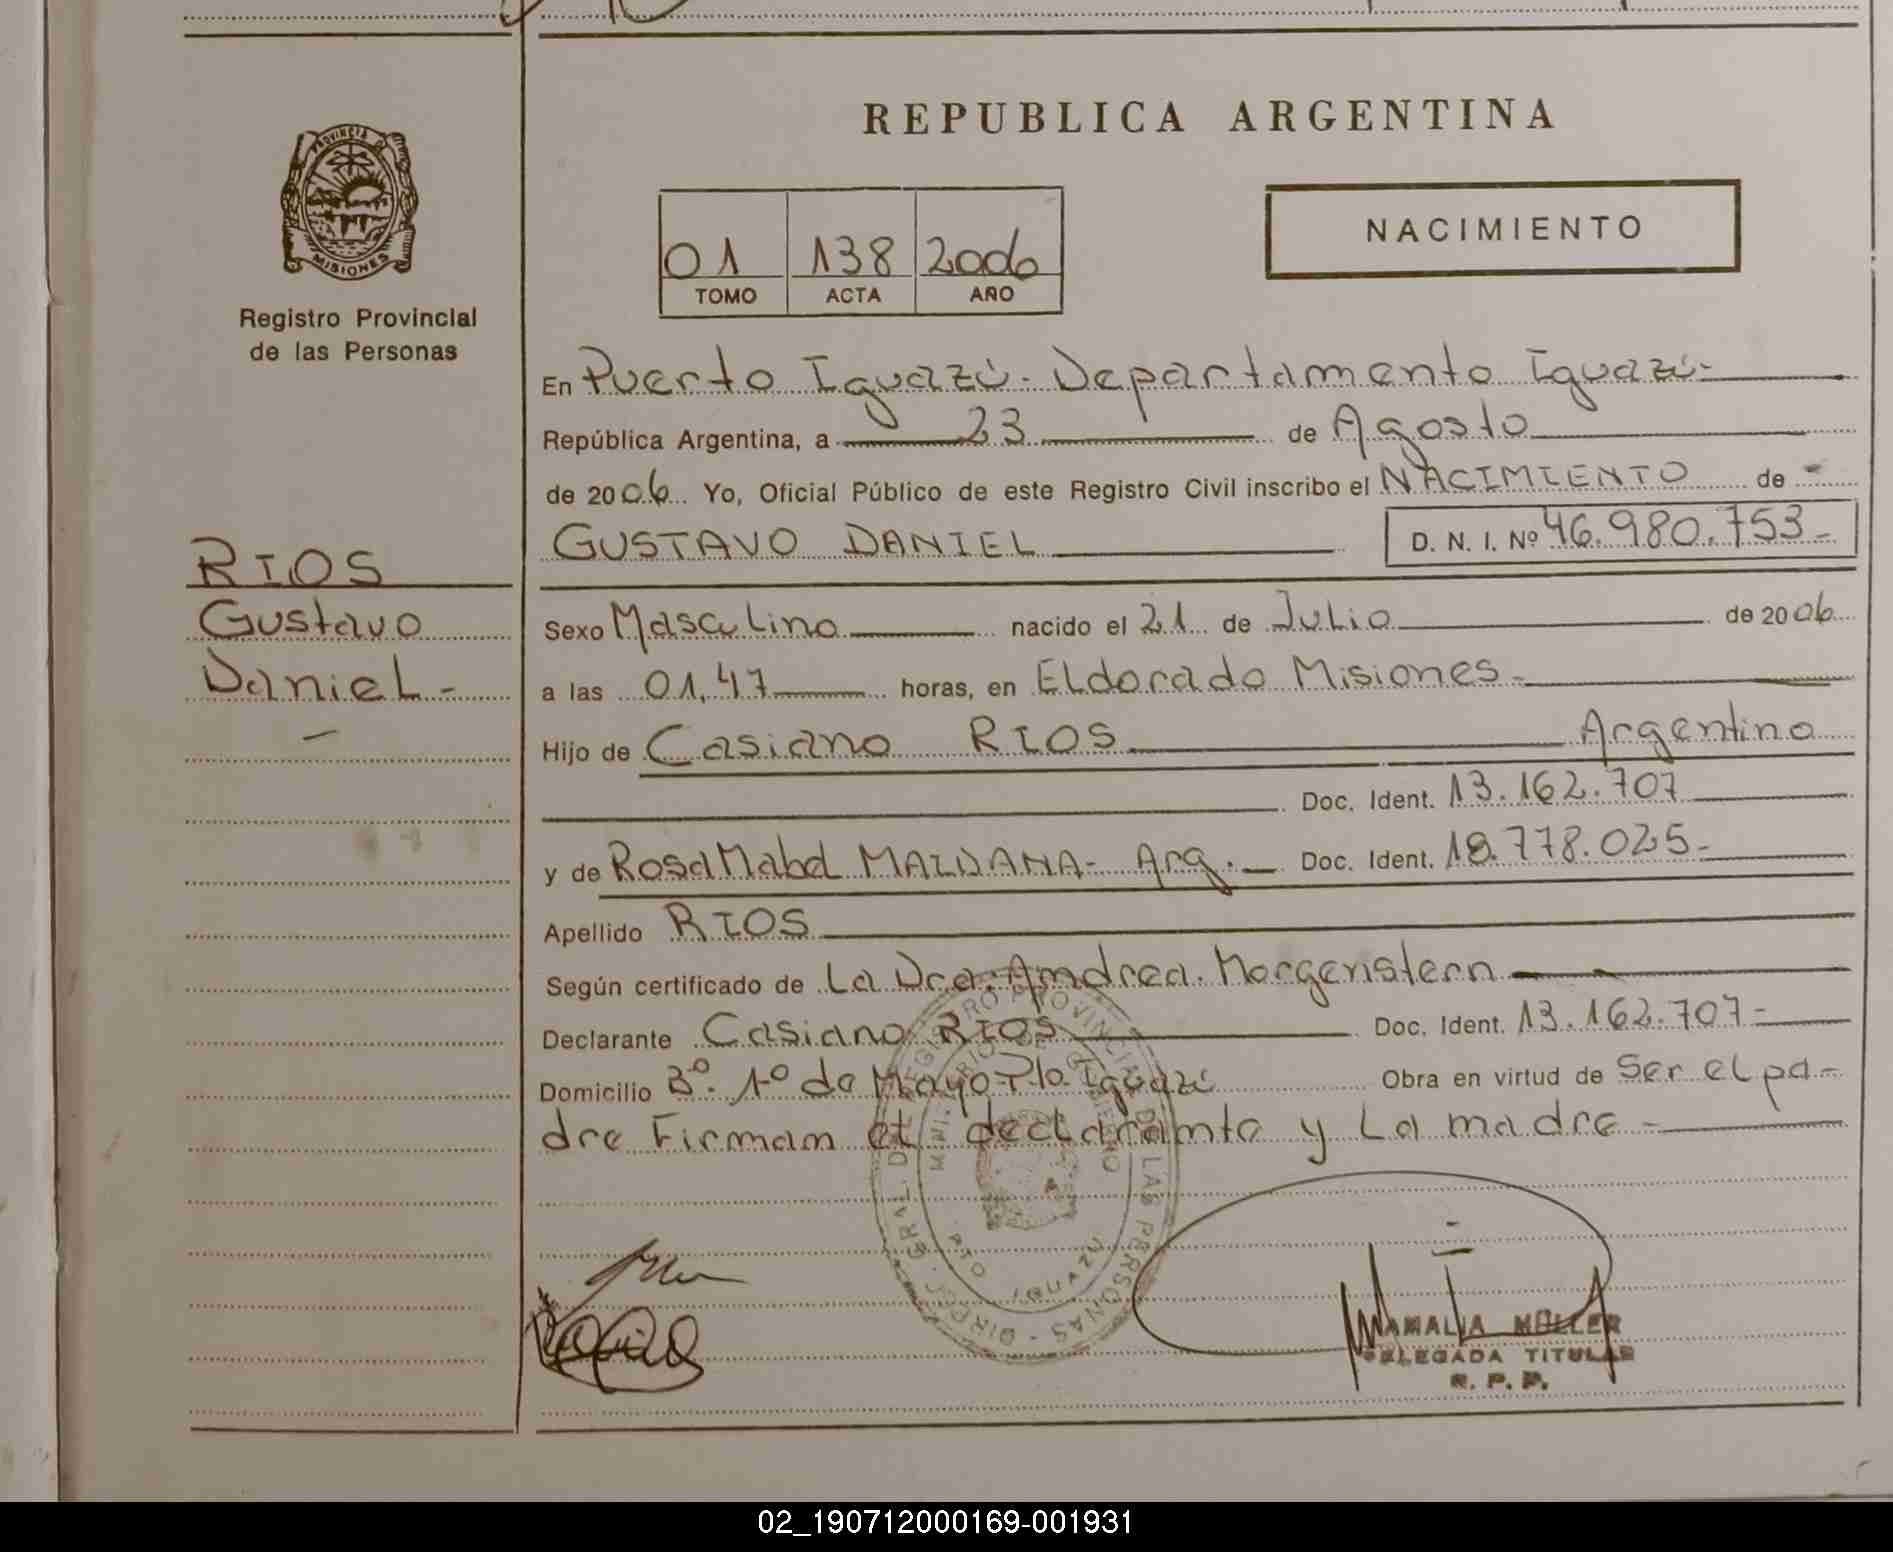 REPUBLICA ARGENTINA
PROVINCIA DE
MISIONES
Registro Provincial
de las Personas
NACIMIENTO
01 138 2006
TOMO ACTA AÑO
En Puerto Iguazú. Departamento Iguazú-
República Argentina, a 23 de Agosto
de 2006 Yo, Oficial Público de este Registro Civil inscribo el NACIMIENTO de -
GUSTAVO DANIEL D. N. I. Nº 46.980.753-
RIOS
Gustavo
Daniel-
Sexo Masculino nacido el 21 de Julio de 2006
a las 01,47 horas, en Eldorado Misiones-
Hijo de Casiano RIOS Argentino
Doc. Ident. 13.162.707
y de Rosa Mabel MAIDANA- Arg. Doc. Ident. 18.778.025-
Apellido RIOS
Según certificado de La Dra. Andrea. Morgenstern
Declarante Casiano RIOS Doc. Ident. 13.162.707-
Domicilio Bº. 1º de Mayo Pto. Iguazú Obra en virtud de Ser el pa-
dre Firman el declarante y La madre-
DIRECC. GERAL. DE REGISTRO PROVINCIAL DE LAS PERSONAS
MINISTERIO DE GOBIERNO
PTO. IGUAZU
AMALIA MÜLLER
DELEGADA TITULAR
R. P. P.
02_190712000169-001931